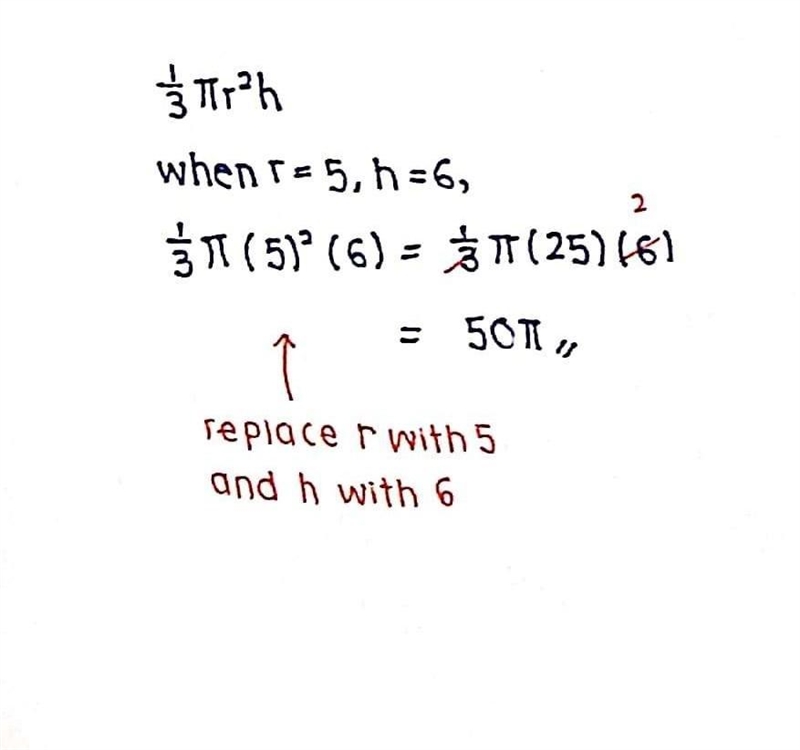 1/3 πr²h
when r = 5, h = 6,
2
1/3 π (5)² (6) = 1/3 π (25) (6)
= 50π,,
replace r with 5
and h with 6